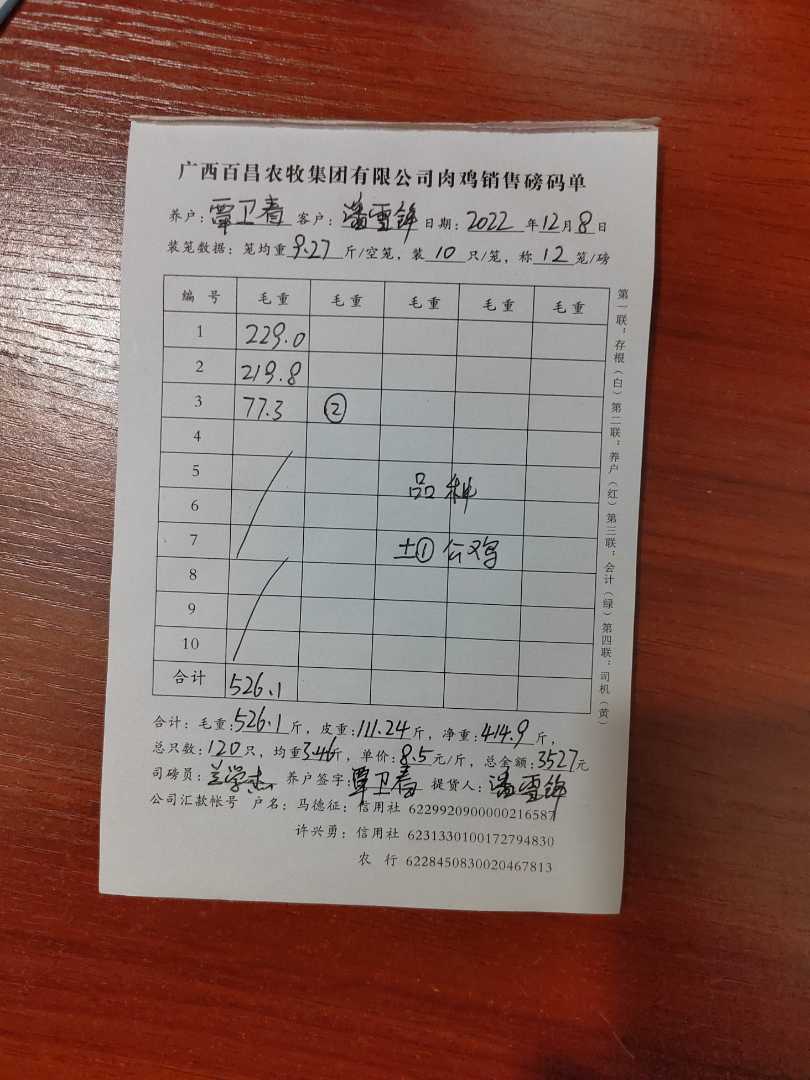 广西百昌农牧集团有限公司肉鸡销售磅码单
养户:覃卫春 客户:潘雪锋 日期:2022 年12月8日
装笼数据:笼均重9.27斤/空笼,装10只/笼,称12笼/磅
编号 毛重 毛重 毛重 毛重 毛重
1 229.0
2 219.8
3 77.3 ②
4
5 品种
6
7 土① 公鸡
8
9
10
合计 526.1
合计:毛重:526.1斤,皮重:111.24斤,净重:414.9斤,
总只数:120只,均重3.46斤,单价:8.5元/斤,总金额:3527元
司磅员:兰学杰 养户签字:覃卫春 提货人:潘雪锋
公司汇款帐号 户名:马德征:信用社 6229920900000216587
许兴勇:信用社 6231330100172794830
农 行 6228450830020467813
第一联:存根(白)第二联:养户(红)第三联:会计(绿)第四联:司机(黄)